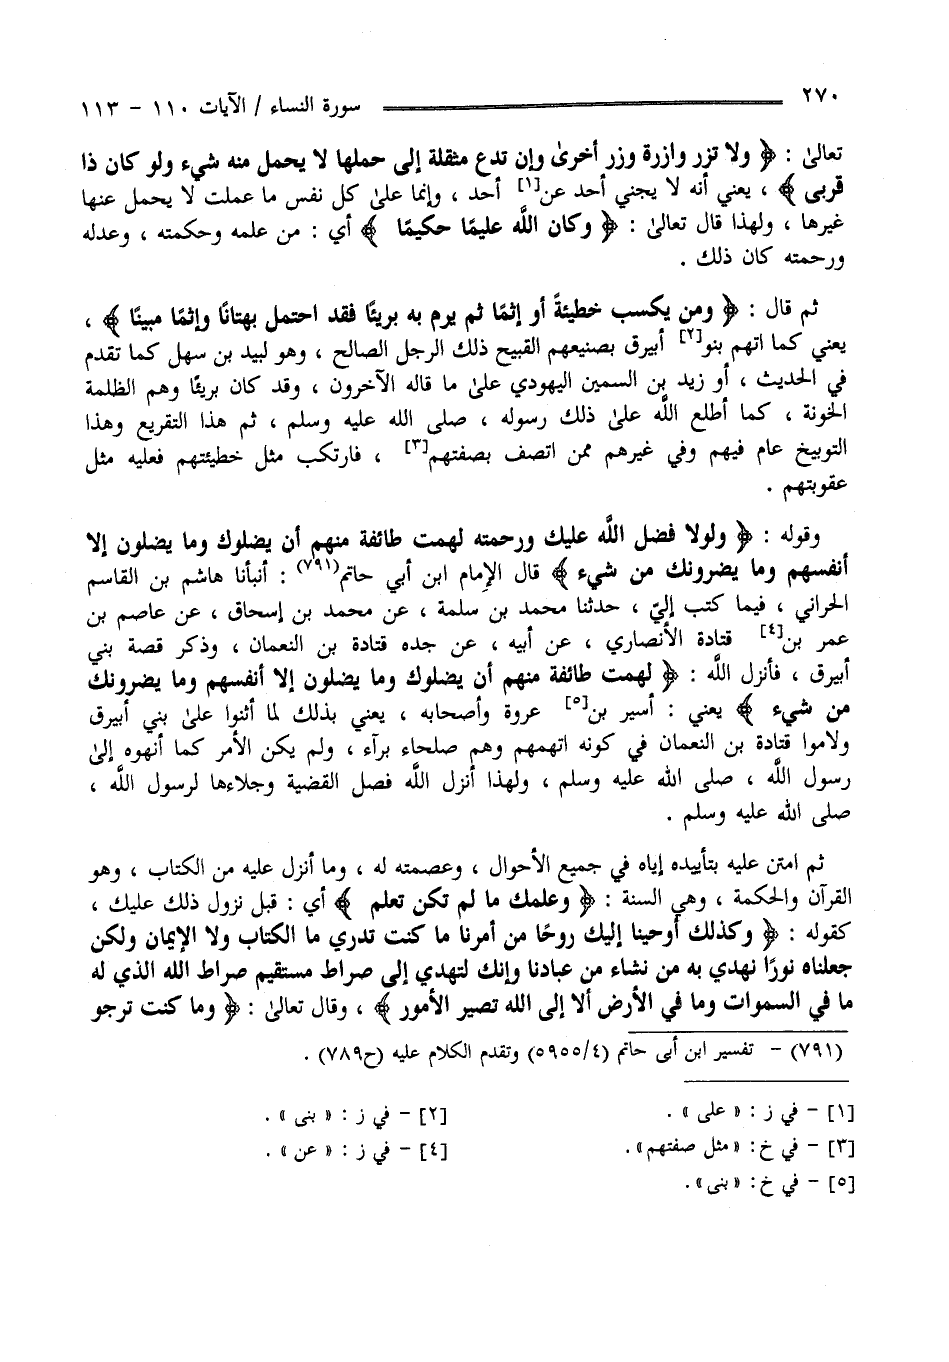 ٢٧٠ سورة النساء / الآيات ١١٠ - ١١٣
تعالىٰ : ﴿ ولا تزر وازرة وزر أخرىٰ وإن تدع مثقلة إلى حملها لا يحمل منه شيء ولو كان ذا
قربى ﴾ ، يعني أنه لا يجني أحد عن[١] أحد ، وإنما علىٰ كل نفس ما عملت لا يحمل عنها
غيرها ، ولهذا قال تعالىٰ : ﴿ وكان اللَّه عليمًا حكيمًا ﴾ أي : من علمه وحكمته ، وعدله
ورحمته كان ذلك .
ثم قال : ﴿ ومن يكسب خطيئةً أو إثمًا ثم يرم به بريئًا فقد احتمل بهتانًا وإثمًا مبينًا ﴾ ،
يعني كما اتهم بنو[٢] أبيرق بصنيعهم القبيح ذلك الرجل الصالح ، وهو لبيد بن سهل كما تقدم
في الحديث ، أو زيد بن السمين اليهودي علىٰ ما قاله الآخرون ، وقد كان بريئًا وهم الظلمة
الخونة ، كما أطلع اللَّه علىٰ ذلك رسوله ، صلى الله عليه وسلم ، ثم هذا التقريع وهذا
التوبيخ عام فيهم وفي غيرهم ممن اتصف بصفتهم[٣] ، فارتكب مثل خطيئتهم فعليه مثل
عقوبتهم .
وقوله : ﴿ ولولا فضل اللَّه عليك ورحمته لهمت طائفة منهم أن يضلوك وما يضلون إلا
أنفسهم وما يضرونك من شيء ﴾ قال الإمام ابن أبي حاتم(٧٩١) : أنبأنا هاشم بن القاسم
الحراني ، فيما كتب إليّ ، حدثنا محمد بن سلمة ، عن محمد بن إسحاق ، عن عاصم بن
عمر بن[٤] قتادة الأنصاري ، عن أبيه ، عن جده قتادة بن النعمان ، وذكر قصة بني
أبيرق ، فأنزل اللَّه : ﴿ لهمت طائفة منهم أن يضلوك وما يضلون إلا أنفسهم وما يضرونك
من شيء ﴾ يعني : أسير بن[٥] عروة وأصحابه ، يعني بذلك لما أثنوا علىٰ بني أبيرق
ولاموا قتادة بن النعمان في كونه اتهمهم وهم صلحاء برآء ، ولم يكن الأمر كما أنهوه إلىٰ
رسول اللَّه ، صلى الله عليه وسلم ، ولهذا أنزل اللَّه فصل القضية وجلاءها لرسول اللَّه ،
صلى الله عليه وسلم .
ثم امتن عليه بتأييده إياه في جميع الأحوال ، وعصمته له ، وما أنزل عليه من الكتاب ، وهو
القرآن والحكمة ، وهي السنة : ﴿ وعلمك ما لم تكن تعلم ﴾ أي : قبل نزول ذلك عليك ،
كقوله : ﴿ وكذلك أوحينا إليك روحًا من أمرنا ما كنت تدري ما الكتاب ولا الإيمان ولكن
جعلناه نورًا نهدي به من نشاء من عبادنا وإنك لتهدي إلى صراط مستقيم صراط الله الذي له
ما في السموات وما في الأرض ألا إلى الله تصير الأمور ﴾ ، وقال تعالىٰ : ﴿ وما كنت ترجو
(٧٩١) - تفسير ابن أبى حاتم (٥٩٥٥/٤) وتقدم الكلام عليه (ح٧٨٩) .
[١] - في ز : « على » . [٢] - في ز : « بنى » .
[٣] - في خ : « مثل صفتهم» . [٤] - في ز : « عن » .
[٥] - في خ : « بنى» .